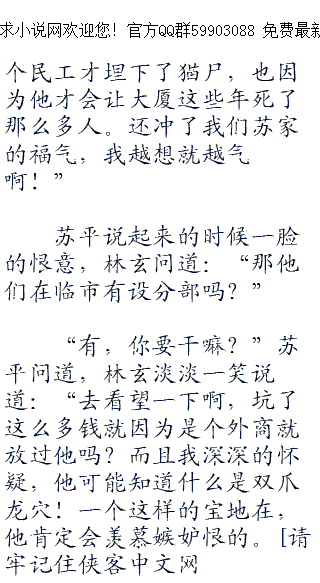 求小说网欢迎您！官方QQ群59903088 免费最新
个民工才埋下了猫尸，也因
为他才会让大厦这些年死了
那么多人。还冲了我们苏家
的福气，我越想就越气
啊！”
苏平说起来的时候一脸
的恨意，林玄问道：“那他
们在临市有设分部吗？”
“有，你要干嘛？”苏
平问道，林玄淡淡一笑说
道：“去看望一下啊，坑了
这么多钱就因为是个外商就
放过他吗？而且我深深的怀
疑，他可能知道什么是双爪
龙穴！一个这样的宝地在，
他肯定会羡慕嫉妒恨的。[请
牢记住侠客中文网